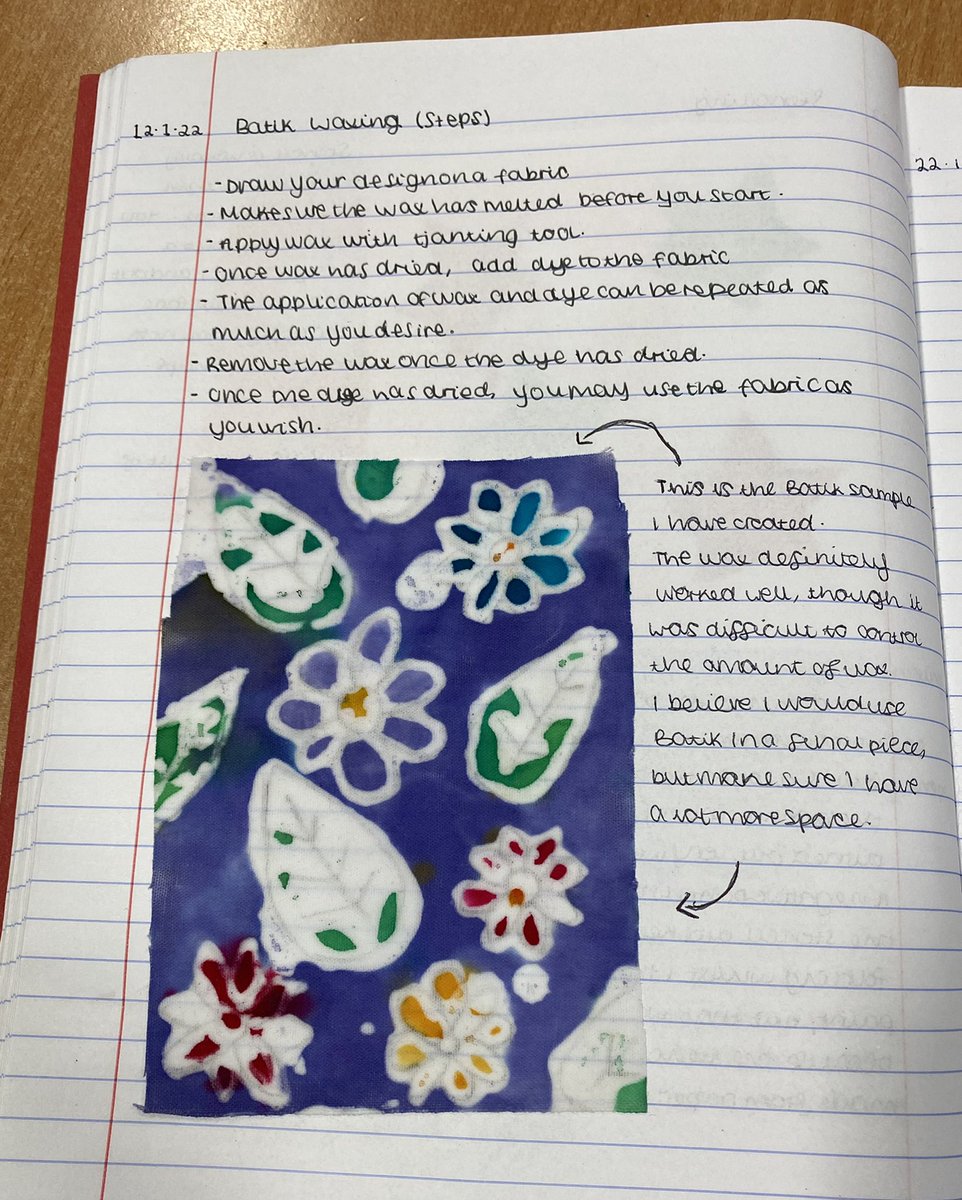 12.1.22 Batik Waxing (Steps)
- Draw your design on a fabric
- Make sure the wax has melted before you start.
- Appy wax with tjanting tool.
- Once wax has dried, add dye to the fabric
- The application of wax and dye can be repeated as
much as you desire.
- Remove the wax once the dye has dried.
- Once the dye has dried, you may use the fabric as
you wish.
This is the Batik sample
I have created.
The wax definitely
worked well, though it
was difficult to control
the amount of wax.
I believe I would use
Batik in a final piece,
but make sure I have
a lot more space.
22.1